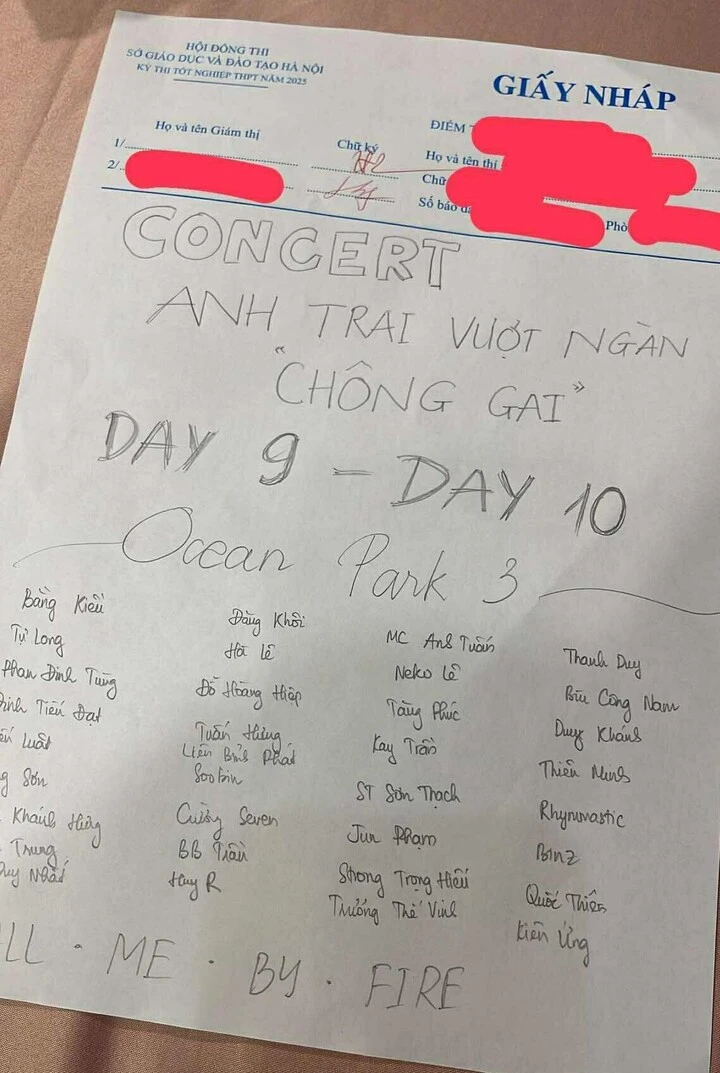 HỘI ĐỒNG THI
SỞ GIÁO DỤC VÀ ĐÀO TẠO HÀ NỘI
KỲ THI TỐT NGHIỆP THPT NĂM 2025
GIẤY NHÁP
Họ và tên Giám thị
Chữ ký
1/
2/
ĐIỂM
Họ và tên thí
Chữ
Số báo da
Phò
CONCERT
ANH TRAI VƯỢT NGÀN
"CHÔNG GAI"
DAY 9 - DAY 10
Ocean Park 3
Bằng Kiều
Tự Long
Phan Đinh Tùng
Đinh Tiến Đạt
Luật
Sơn
Khánh Hưng
Trung
Duy Nhất
Đăng Khôi
Hà Lê
Đỗ Hoàng Hiệp
Tuấn Hưng
Liên Bỉnh Phát
Soobin
Cường Seven
BB Trần
Huy R
MC Anh Tuấn
Neko Lê
Tăng Phúc
Kay Trần
ST Sơn Thạch
Jun Phạm
Strong Trọng Hiếu
Trương Thế Vinh
Thanh Duy
Bùi Công Nam
Duy Khánh
Thiên Minh
Rhymnastic
Binz
Quốc Thiên
Kiên Ứng
LL · ME · BY · FIRE